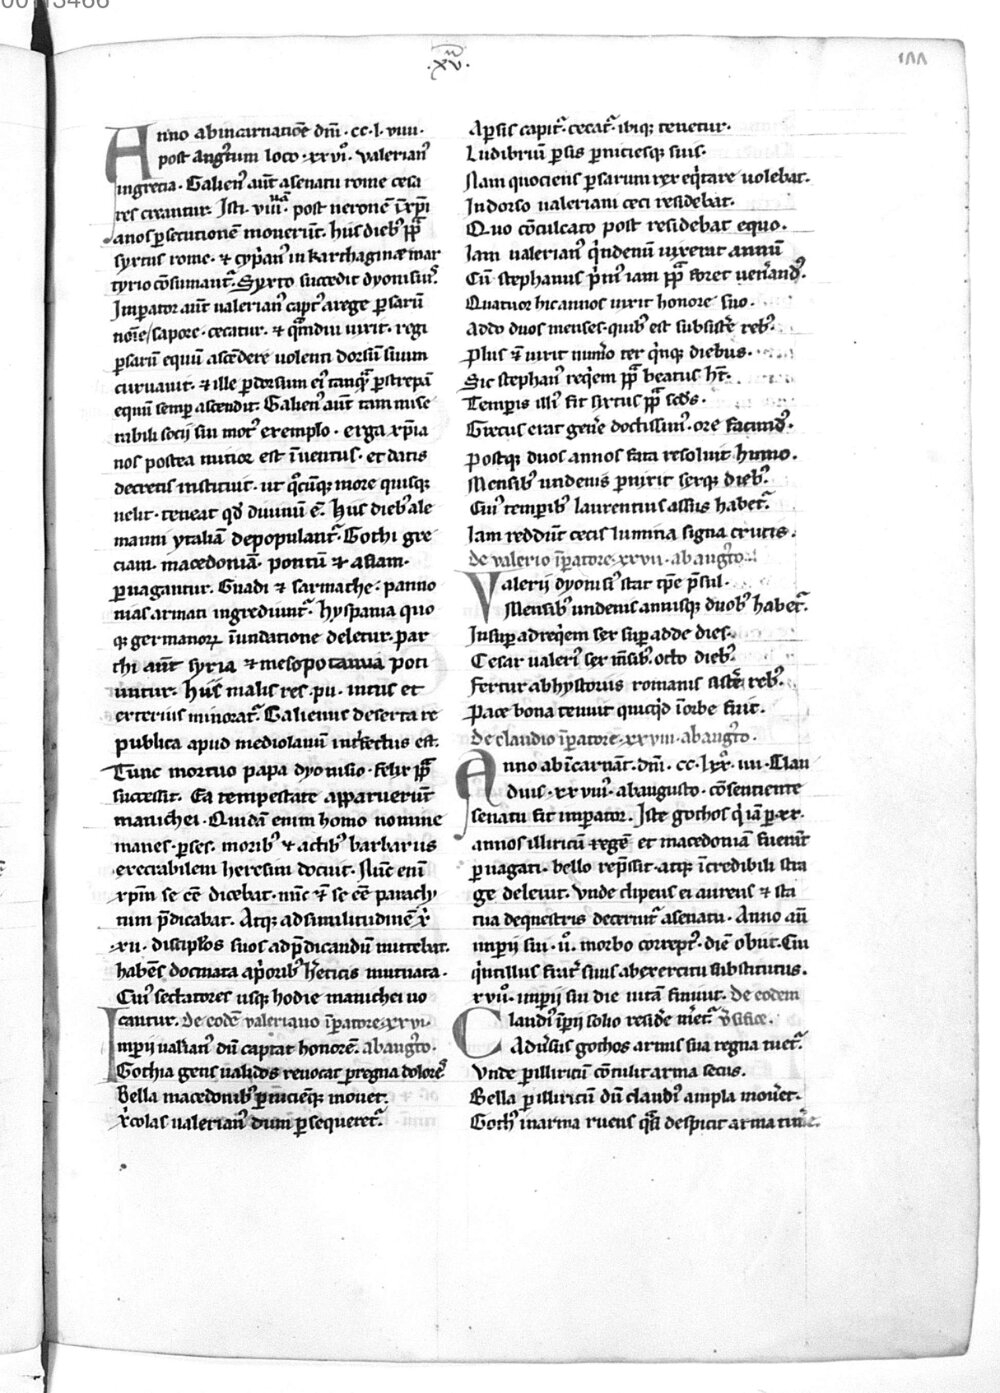 .xv.
Anno ab incarnatiõe dñi · cc · l · viiii ·
post augustum loco · xxvi · valerian⁹
in grecia · Galien⁹ aũt a senatu rome cesa
res creantur · Isti · viiiia · post neronẽ i xp̄i
anos ꝑsecutionẽ mouerũt · hiis dieb⁹ pp̄
syxtus rome · ⁊ cyp̄an⁹ in karthagine mar
tyrio cõsumant᷑ · Syxto succedit dyonisius
Imꝑator aũt valerian⁹ capt⁹ a rege ꝑsarũ
noĩe / sapore · cecatur · ⁊ q̃mdiu vixit · regi
ꝑsarũ equũ ascẽdere volenti dorsũ suum
curuauit · ⁊ ille ꝑ dorsum ei⁹ tanq̃
equũ semꝑ ascendit · Galien⁹ aũt tam mise
rabili socii sui mot⁹ exemplo · erga xp̄ia
nos postea mitior est ĩuentus · et datis
decretis instituit · ut q̃cũq; more quisq;
uelit · teneat qđ diuinũ ẽ · hiis dieb⁹ ale
manni ytaliam depopulant᷑ · Gothi gre
ciam · macedoniam · pontũ ⁊ asiam ·
ꝑuagantur · Guadi ⁊ sarmathe · panno
nias armati ingrediunt᷑ · hyspania quo
q; germanoꝝ ĩundatione deletur · par
thi aũt syria ⁊ mesopotamia poti
untur · hiis malis res · pu · intus et
exterius minorat᷑ · Galienus deserta re
publica apud mediolanũ int̾fectus est ·
Tunc mortuo papa dyonisio · felix pp̄
successit · Ea tempestate apparuerũt
manichei · Quidã enim homo nomine
manes · ꝑses · morib⁹ ⁊ actib⁹ barbarus
execrabilem heresim docuit · Nũc enĩ
xp̄m se eẽ dicebat · nũc ⁊ se eẽ paracly
tum p̄dicabat · Atq; ad similitudinẽ xp̄i
· xii · discipl̃os suos ad p̄dicandũ mittebat ·
habẽs docmata a p̃orib⁹ h̾eticis mutuata ·
Cui⁹ sectatores usq; hodie manichei uo
cantur · De eodẽ valeriano ĩꝑatore · xxvi ·
Imꝑii ualian⁹ dũ captat honorẽ · ab aug̃to ·
Gothia gens ualidos reuocat ꝑ regna dolores
Bella macedonib⁹ ꝑniciẽq; mouet ·
xp̄icolas valerian⁹ dum ꝑsequeret᷑ ·
A ꝑsis capit᷑ · cecat᷑ · ibiq; tenetur ·
Ludibriũ ꝑsis ꝑniciesq; suis ·
Nam quociens ꝑsarum rex eq̃tare uolebat ·
In dorso valeriani ceci residebat ·
Quo cõculcato post residebat equo ·
Iam valerian⁹ q̃ndenũ uixerat annũ
Cũ stephanus p̃m⁹ iam pp̄ foret uen̾and⁹ ·
Quatuor hic annos uixit honore suo ·
Addo duos menses · quib⁹ est subsistẽ reb⁹ ·
Plus ⁊ uixit num̾o ter q̃nq; diebus ·
Sic stephan⁹ req̃em pp̄ beatus h̃t ·
Temporis illi⁹ fit sixtus pp̄ scđs ·
Grecus erat gen̾e doctissim⁹ · ore facund⁹ ·
Postq; duos annos fata resoluit humo ·
Mensib⁹ undenis ꝑuixit sexq; dieb⁹
Cui⁹ temporib⁹ laurentius assus habet᷑ ·
Iam reddũt cecis lumina signa crucis ·
de valerio ĩꝑatore · xxvii · ab aug̃to ·
Valerii dyonisi⁹ stat tp̄e p̄sul ·
Mensib⁹ undenis annisq; duob⁹ habet᷑ ·
Insuꝑ ad req̃em sex suꝑ adde dies ·
Cesar ualeri⁹ sex m̃sib⁹ · octo dieb⁹
fertur ab hystoriis romanis sistẽ reb⁹ ·
Pace bona tenuit quicq̃d ĩ orbe fuit ·
De claudio ĩꝑatore · xxviii · ab aug̃to ·
Anno ab ĩcarnat̃ · dñi · cc · lxx · iiii · Clau
dius · xxviii · ab augusto · cõsentiente
senatu fit imꝑator · Iste gothos q̃ iã ꝑ · xx ·
annos illiricũ regẽ et macedoniã fuerũt
ꝑuagati · bello rep̃ssit · atq; ĩcredibili stra
ge deleuit · Vnde clipeus ei aureus ⁊ sta
tua equestris decernit᷑ a senatu · Anno aũ
imꝑii sui · ii · morbo corrept⁹ · diẽ obiit · Cui
q̃ntillus frat̾ suus ab exercitu substitutus ·
xvii · imꝑii sui die uitã finiuit · De eodem
Claudi⁹ imꝑii solio residẽ mẽt᷑ · v̾sifice ·
Adu̾sus gothos armis sua regna tuet᷑ ·
Vnde ꝑ illiricũ cõtulit arma secus ·
Bella ꝑ illiricũ dũ claudi⁹ ampla mou̾et ·
Goth⁹ in arma ruens q̃si despicit arma tim̾e ·